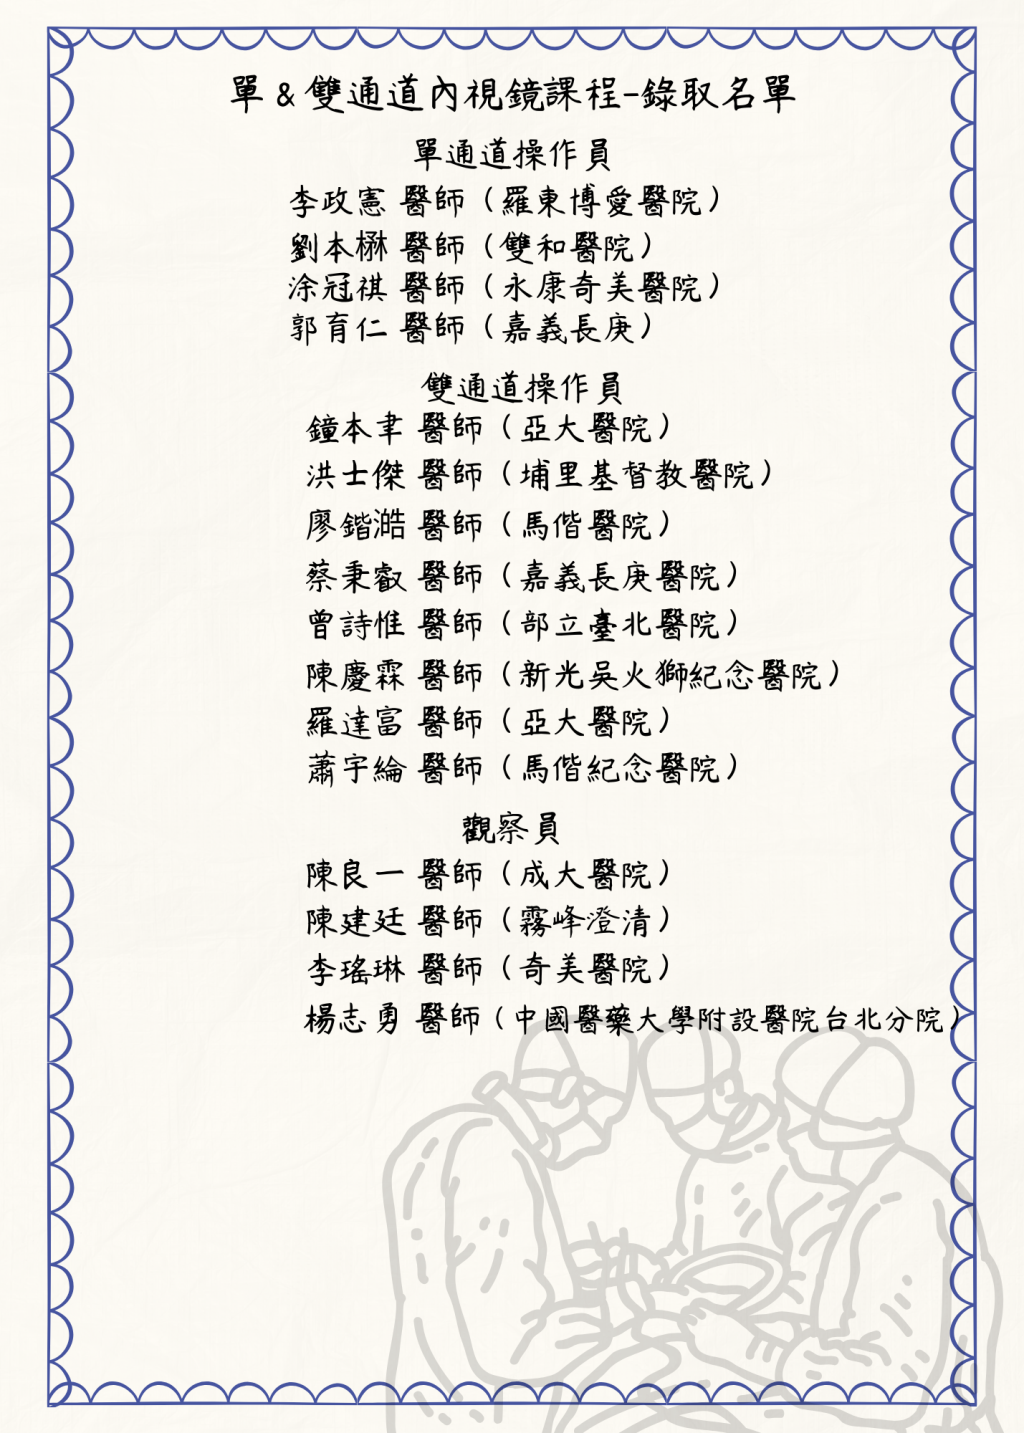 單 & 雙通道內視鏡課程-錄取名單
單通道操作員
李政憲 醫師（羅東博愛醫院）
劉本楙 醫師（雙和醫院）
涂冠祺 醫師（永康奇美醫院）
郭育仁 醫師（嘉義長庚）
雙通道操作員
鐘本聿 醫師（亞大醫院）
洪士傑 醫師（埔里基督教醫院）
廖鍇澔 醫師（馬偕醫院）
蔡秉叡 醫師（嘉義長庚醫院）
曾詩惟 醫師（部立臺北醫院）
陳慶霖 醫師（新光吳火獅紀念醫院）
羅達富 醫師（亞大醫院）
蕭宇綸 醫師（馬偕紀念醫院）
觀察員
陳良一 醫師（成大醫院）
陳建廷 醫師（霧峰澄清）
李瑤琳 醫師（奇美醫院）
楊志勇 醫師（中國醫藥大學附設醫院台北分院）